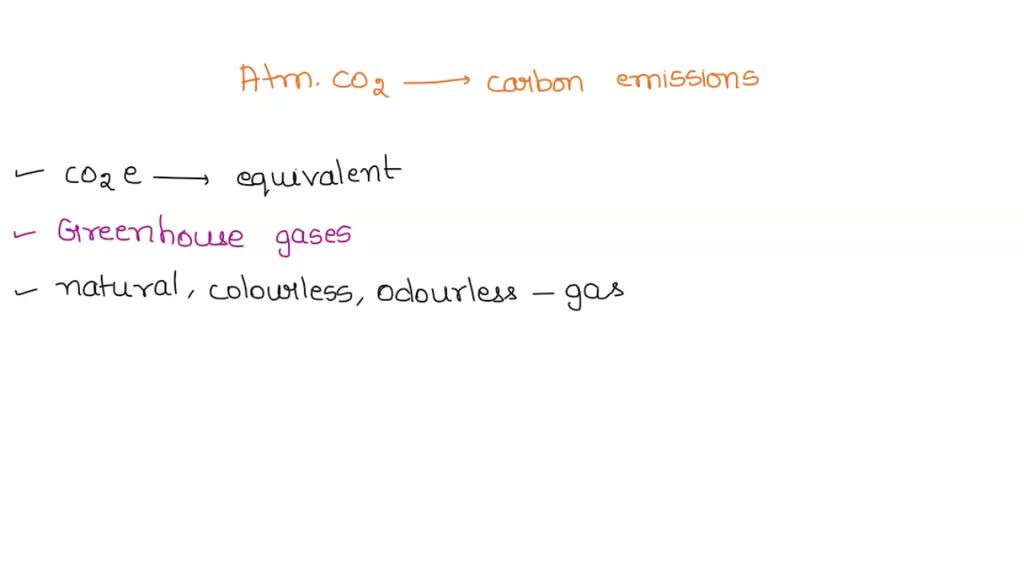 Atm. CO2 → carbon emissions
✓ CO2 e → equivalent
✓ Greenhouse gases
✓ natural, colourless, odourless – gas